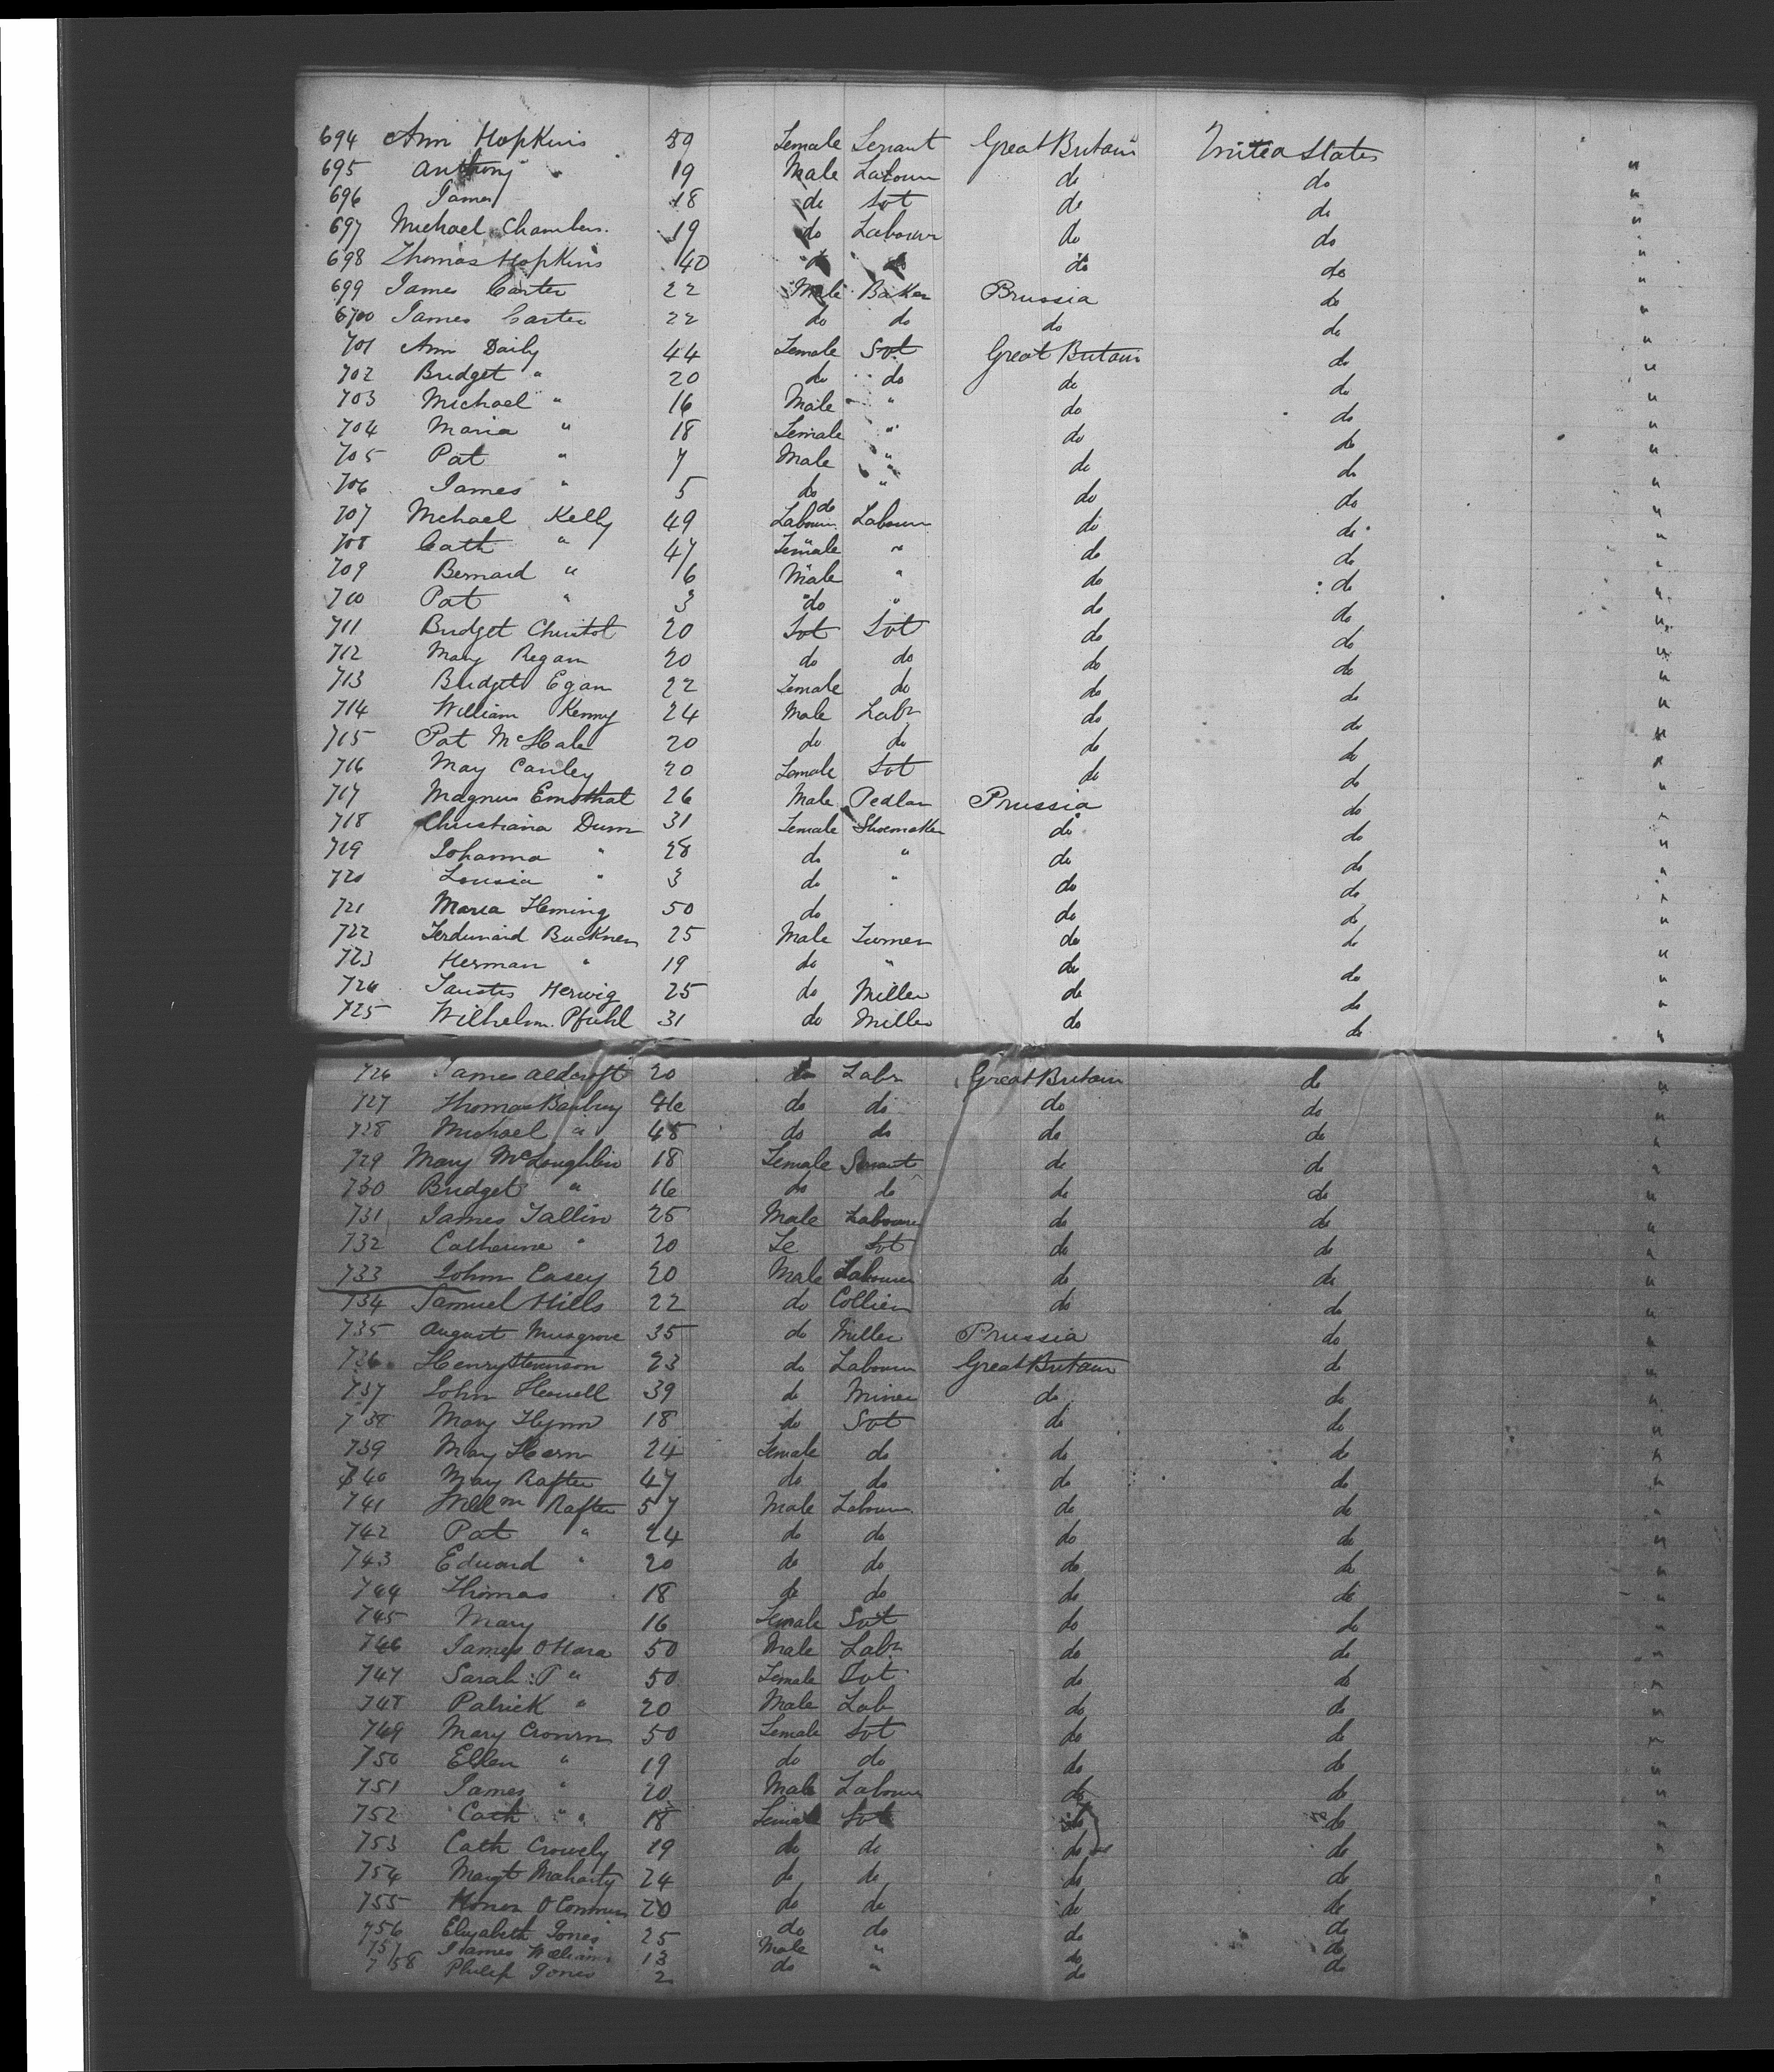 694 Ann Hopkins 39 Female Servant Great Britain United States
695 Anthony " 19 Male Labourer do do "
696 James 18 do Svt do do "
697 Michael Chambers 19 do Labourer do do "
698 Thomas Hopkins 40 do do do do "
699 James Carter 22 Male Baker Prussia do "
6700 James Carter 22 do do do do "
701 Ann Daily 44 Female Svt Great Britain do "
702 Bridget " 20 do do do do "
703 Michael " 16 Male " do do "
704 Maria " 18 Female " do do "
705 Pat " 7 Male " do do "
706 James " 5 do " do do "
707 Michael Kelly 49 Labour do Labour do do "
708 Cath " 47 Female " do do "
709 Bernard " 6 Male " do do "
710 Pat " 3 do " do do "
711 Bridget Christol 20 Svt Svt do do "
712 Mary Regan 20 do do do do "
713 Bridget Egan 22 Female do do do "
714 William Kenny 24 Male Labr do do "
715 Pat McHale 20 do do do do "
716 May Canley 20 Female Svt do do "
717 Magnus Emsthal 26 Male Pedlar Prussia do "
718 Christiana Dum 31 Female Shoemaker do do "
719 Johanna " 28 do " do do "
720 Lousia " 3 do " do do "
721 Maria Heming 50 do " do do "
722 Ferdinaid Buckner 25 Male Turner do do "
723 Herman " 19 do " do do "
724 Herwig 25 do Miller do do "
725 Wilhelm Pfuhl 31 do Miller do do "
726 James Aldcroft 20 do Labr Great Britain do "
727 Thomas Banbury 46 do do do do "
728 Michael " 48 do do do do "
729 Mary McLoughlin 18 Female Servant do do "
730 Bridget " 16 do do do do "
731 James Tallin 25 Male Labourer do do "
732 Catherine " 20 Fe Svt do do "
733 John Casey 20 Male Labourer do do "
734 Samuel Hills 22 do Collier do do "
735 August Musgrove 35 do Miller Prussia do "
736 Henry Stevenson 23 do Labourer Great Britain do "
737 John Hewell 39 do Miner do do "
738 Mary Flynn 18 do Svt do do "
739 May Hern 24 Female do do do "
740 May Rafter 47 do do do do "
741 Willm Rafter 57 Male Labour do do "
742 Pat " 24 do do do do "
743 Edward " 20 do do do do "
744 Thomas 18 do do do do "
745 Mary 16 Female Svt do do "
746 James OHara 50 Male Labr do do "
747 Sarah P " 50 Female Svt do do "
748 Patrick " 20 Male Lab do do "
749 Mary Cronin 50 Female Svt do do "
750 Ellen " 19 do do do do "
751 James " 20 Male Labour do do "
752 Cath " 18 Female Svt do do "
753 Cath Crowely 19 do do do do "
754 Margt Maharty 24 do do do do "
755 Honor O Connor 20 do do do do "
756 Elizabeth Jones 25 do do do do
757 James Williams 13 Male " do do
758 Philip Jones 2 do " do do